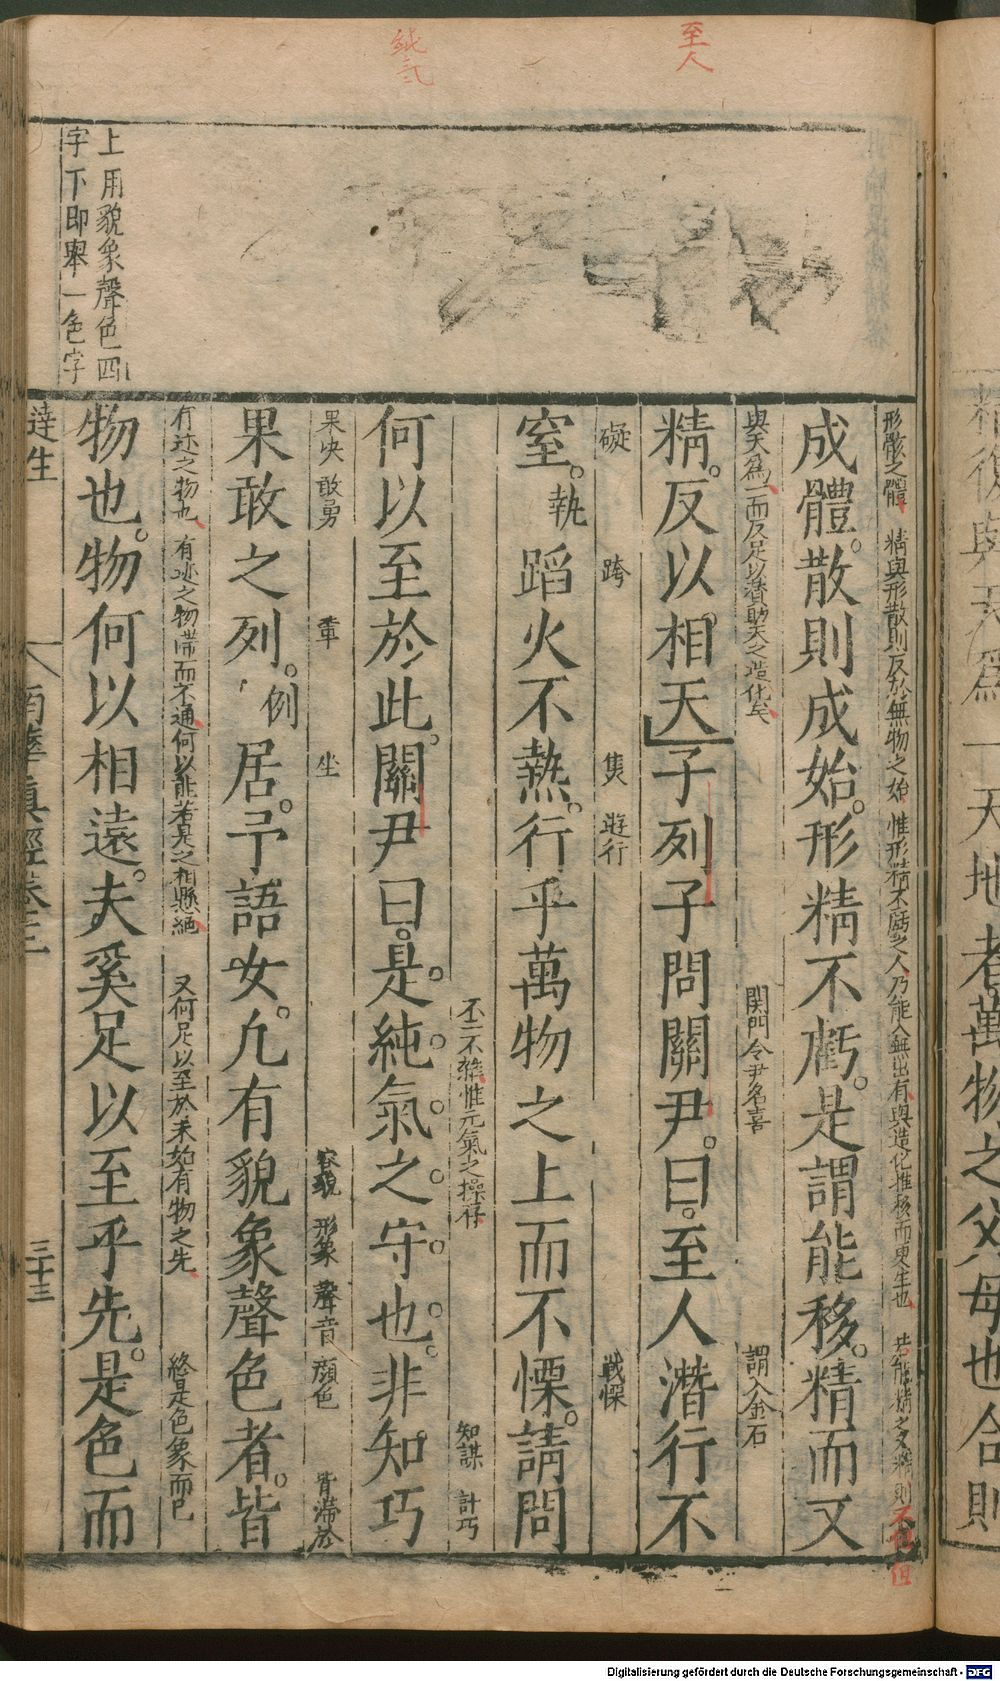 至人
純氣
上用貌象聲色四
字下即舉一色字
形骸之體 精與形散則反於無物之始 惟形精不虧之人乃能入無出有與造化推移而更生也 若能精之又精則不但
成體。散則成始。形精不虧。是謂能移。精而又
與天爲一而反足以潛助天之造化矣 関門令尹名喜 謂入金石
精。反以相天。子列子問關尹。曰。至人潛行不
礙 跨 焦 遊行 戰慄
窒。執蹈火不熱。行乎萬物之上而不慄。請問
不二不雜惟元氣之操存 知謀 計巧
何以至於此。關尹曰。是純氣之守也。非知巧
果决 敢勇 輩 坐 容貌 形象 聲音 顔色 皆滯於
果敢之列。例居。予語女。凡有貌象聲色者。皆
有迹之物也 有迹之物滯而不通何以能若是之相懸絕 又何足以至於未始有物之先 終是色象而已
物也。物何以相遠。夫奚足以至乎先。是色而
達生 南華真經卷三 三十三
精復與天爲一天地者萬物之父母也合則
Digitalisierung gefördert durch die Deutsche Forschungsgemeinschaft - DFG